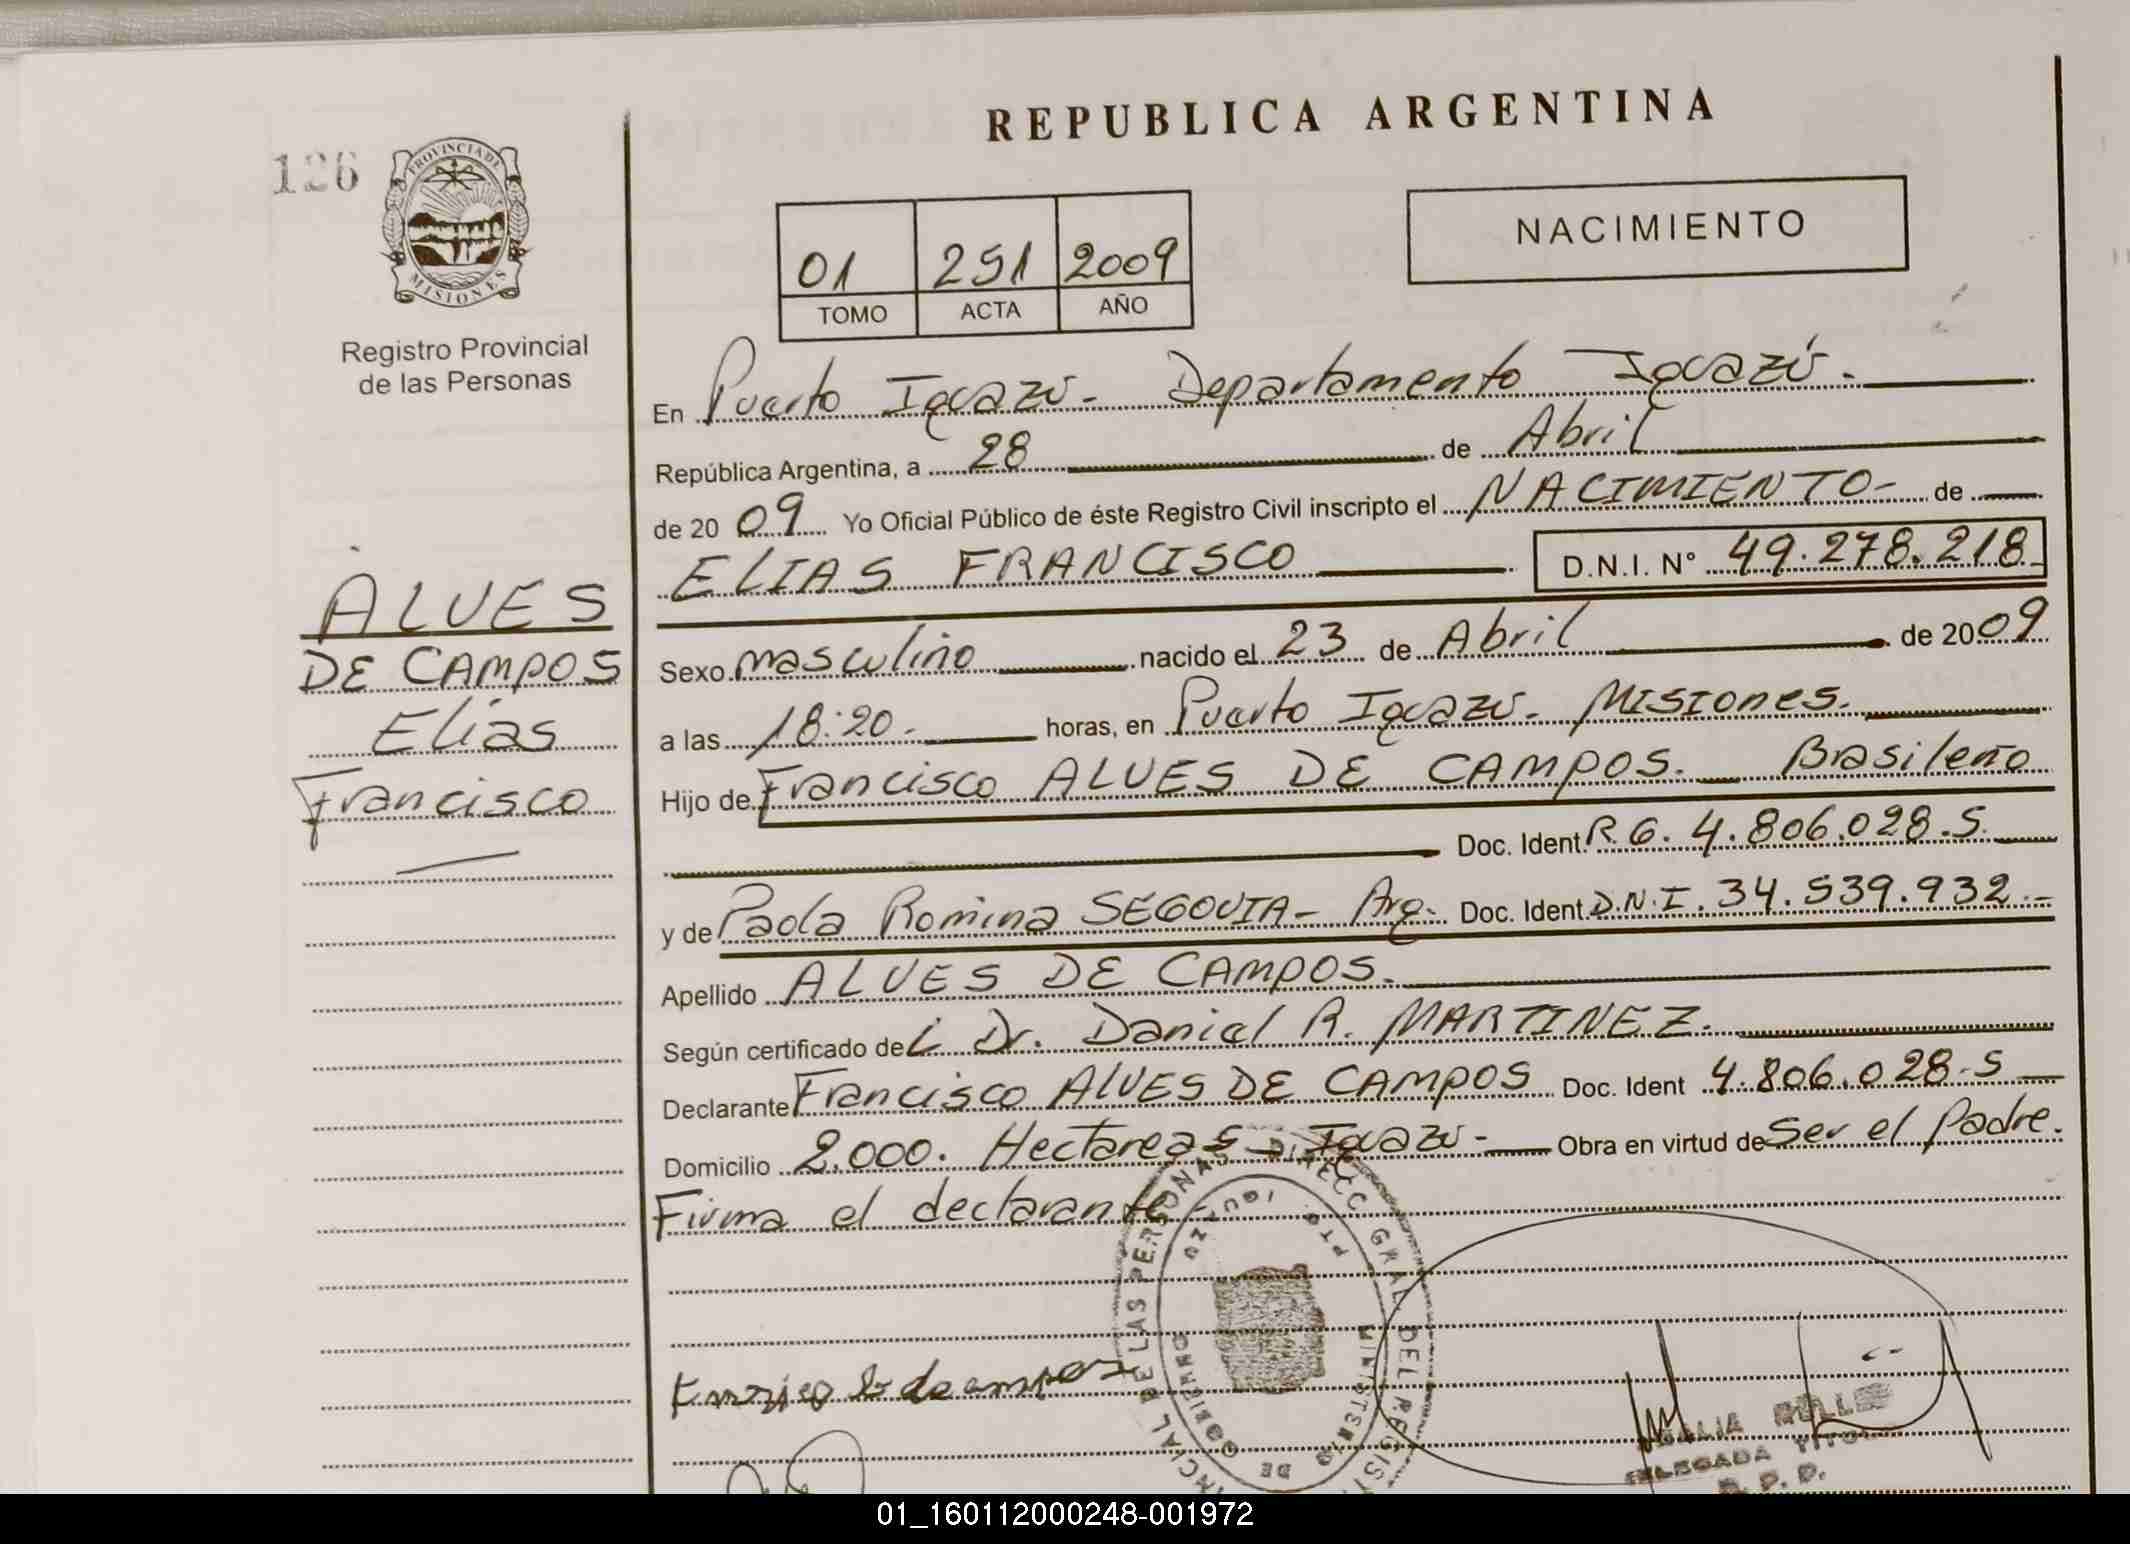 REPUBLICA ARGENTINA
126
PROVINCIA DE
MISIONES
Registro Provincial
de las Personas
NACIMIENTO
01 251 2009
TOMO ACTA AÑO
En Puerto Iguazú - Departamento Iguazú.
República Argentina, a 28 de Abril
de 2009 Yo Oficial Público de éste Registro Civil inscripto el NACIMIENTO - de
ELIAS FRANCISCO D.N.I. Nº 49.278.218
ALVES
DE CAMPOS
Elias
Francisco
Sexo masculino nacido el 23 de Abril de 2009
a las 18:20. horas, en Puerto Iguazú - Misiones.
Hijo de Francisco ALVES DE CAMPOS. Brasileño
Doc. Ident. R.G. 4.806.028-5
y de Paola Romina SEGOVIA - Arg. Doc. Ident. D.N.I. 34.539.932.-
Apellido ALVES DE CAMPOS.
Según certificado del Dr. Daniel R. MARTINEZ.
Declarante Francisco ALVES DE CAMPOS Doc. Ident 4.806.028-5
Domicilio 2.000. Hectareas - Iguazú - Obra en virtud de Ser el Padre.
Firma el declarante
DIRECC GRAL DEL REGIST
NCIAL DE LAS PERSONAS
PTO. IGUAZU
MINISTERIO DE GOBIERNO
DELEGADA
01_160112000248-001972